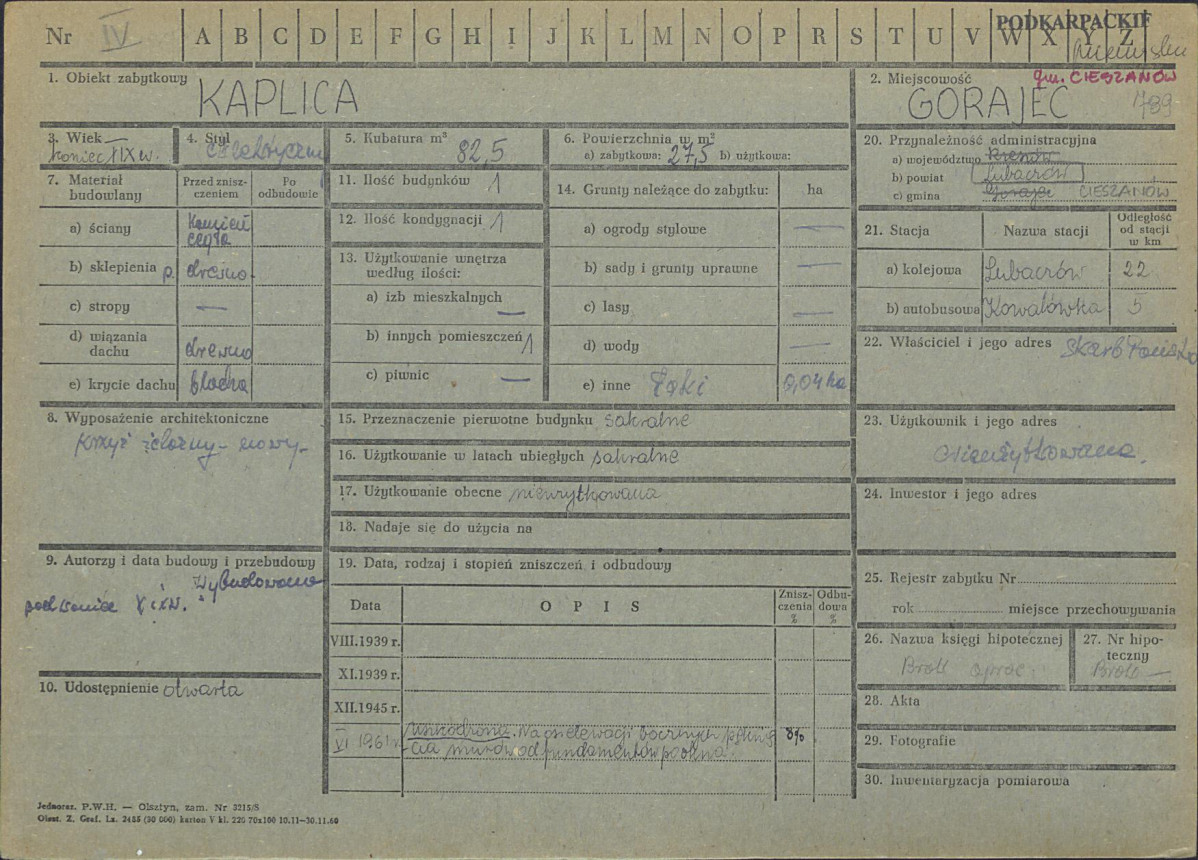 PODKARPACKIE
Nr IV A B C D E F G H I J K L M N O P R S T U V W X Y Z
1. Obiekt zabytkowy KAPLICA
2. Miejscowość gm. CIESZANÓW
GORAJEC 789
3. Wiek
koniec XIX w.
4. Styl
eklektyczny
5. Kubatura m³ 82,5
6. Powierzchnia w m²
a) zabytkowa: 27,5 b) użytkowa:
7. Materiał budowlany
Przed zniszczeniem
Po odbudowie
a) ściany kamień cegła
b) sklepienia p. drewno
c) stropy —
d) wiązania dachu drewno
e) krycie dachu blacha
8. Wyposażenie architektoniczne
Krzyż żelazny - nowy -
9. Autorzy i data budowy i przebudowy
Wybudowana
pod koniec XIX w.
10. Udostępnienie otwarta
11. Ilość budynków 1
12. Ilość kondygnacji 1
13. Użytkowanie wnętrza
według ilości:
a) izb mieszkalnych —
b) innych pomieszczeń 1
c) piwnic —
14. Grunty należące do zabytku: ha
a) ogrody stylowe —
b) sady i grunty uprawne —
c) lasy —
d) wody —
e) inne Łąki 0,04 ha
15. Przeznaczenie pierwotne budynku sakralne
16. Użytkowanie w latach ubiegłych sakralne
17. Użytkowanie obecne nieużytkowana
18. Nadaje się do użycia na
19. Data, rodzaj i stopień zniszczeń i odbudowy
Data OPIS Zniszczenia % Odbudowa %
VIII.1939 r.
XI.1939 r.
XII.1945 r.
VI 1961 r. uszkodzona. Na elewacji bocznych pęknię- 8%
cia murów od fundamentów po okna.
20. Przynależność administracyjna
a) województwo Rzeszów
b) powiat Lubaczów
c) gmina Gorajec CIESZANÓW
21. Stacja Nazwa stacji Odległość od stacji w km
a) kolejowa Lubaczów 22
b) autobusowa Kowalówka 5
22. Właściciel i jego adres Skarb Państwa
23. Użytkownik i jego adres
Nieużytkowana.
24. Inwestor i jego adres
25. Rejestr zabytku Nr
rok miejsce przechowywania
26. Nazwa księgi hipotecznej
Brak oprac.
27. Nr hipoteczny
Brak —
28. Akta
29. Fotografie
30. Inwentaryzacja pomiarowa
Jednoraz. P.W.H. — Olsztyn, zam. Nr 3215/S
Olszt. Z. Graf. Lz. 2485 (30 000) karton V kl. 220 70x100 10.11—30.11.60